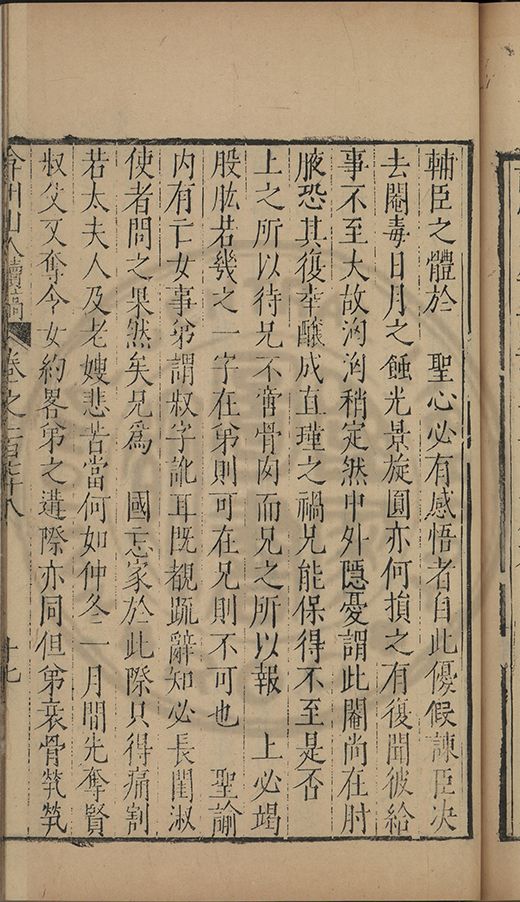 輔臣之體於　聖心必有感悟者自此優假諫臣決
去閹毒日月之蝕光景旋圓亦何損之有後聞彼給
事不至大故洶洶稍定然中外隱憂謂此閹尚在肘
腋恐其復幸釀成直瑾之禍兄能保得不至是否
上之所以待兄不啻骨肉而兄之所以報　上必竭
股肱若幾之一字在弟則可在兄則不可也　聖諭
內有亡女事弟謂叔字訛耳既覩疏辭知必長閨淑
使者問之果然矣兄爲　國忘家於此際只得痛割
若太夫人及老嫂悲苦當何如仲冬一月間先奪賢
叔父又奪令女約畧弟之遘際亦同但弟衰骨煢煢
弇州山人續稿　卷之一百七十八　十七